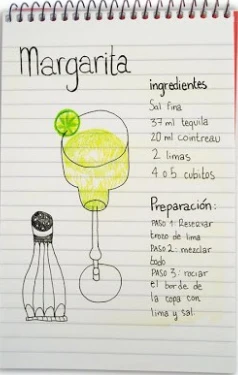 Margarita
ingredientes
Sal fina
37 ml tequila
20 ml cointreau
2 limas
4 o 5 cubitos
Preparación:
PASO 1: Reservar
trozo de lima
PASO 2: mezclar
todo
PASO 3: rociar
el borde de
la copa con
lima y sal.